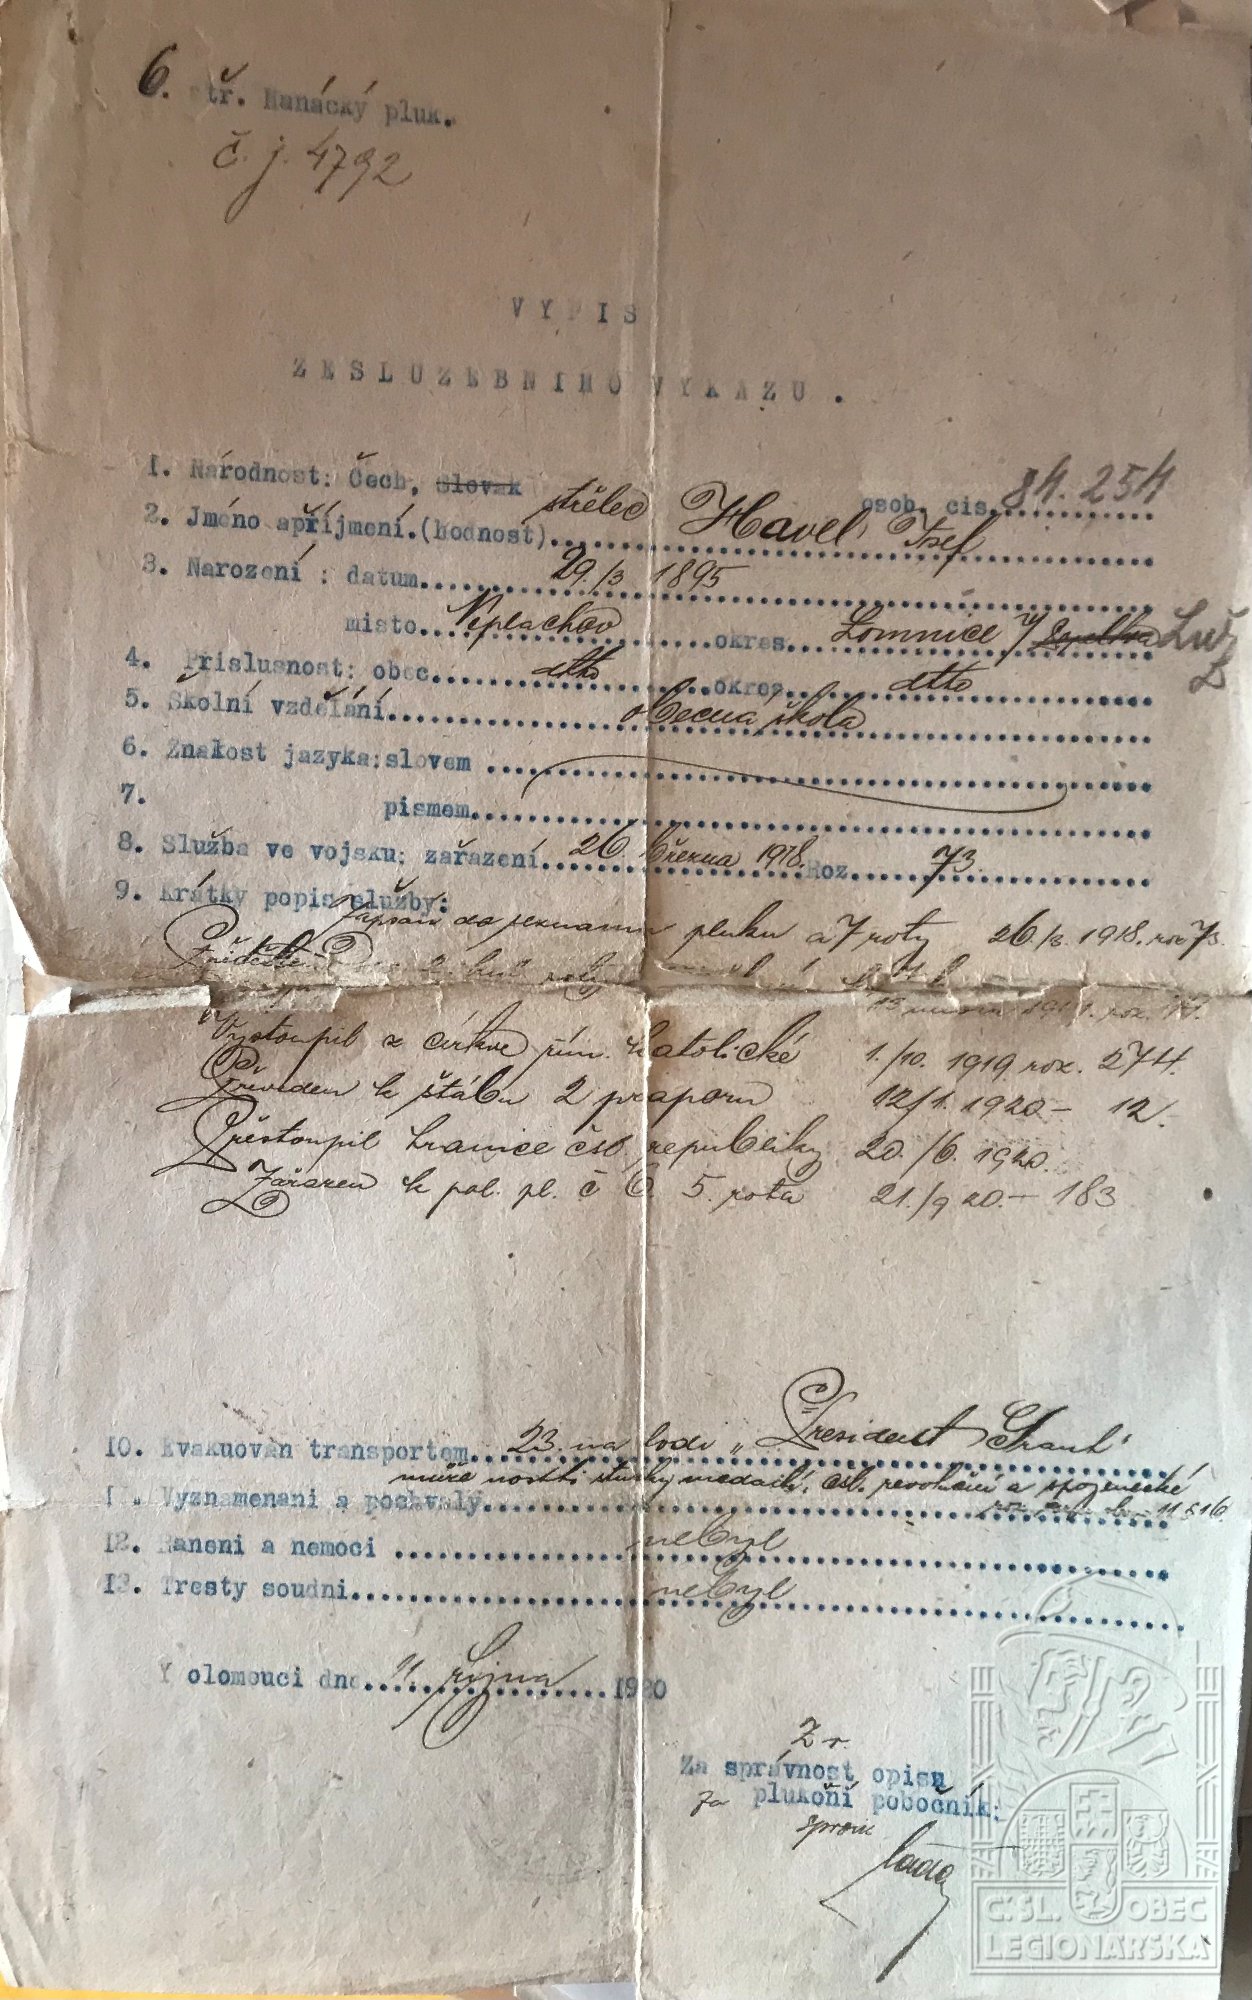 6. stř. Hanácký pluk.
č. j. 4792
VÝPIS
ZESLUZEBNIHO VYKAZU.
I. Národnost: Čech, Slovak
osob. cis. 84.254
2. Jméno apříjmení.(hodnost) střelec Havel Josef
3. Narození : datum 29./3 1895
misto Neplachov okres Lomnice n/ Luž
4. Příslusnost: obec dtto okres dtto
5. Skolní vzdělání obecná škola
6. Znalost jazyka:slovem
7. pismem
8. Služba ve vojsku: zařazení 26. března 1918. Roz. 73.
9. Krátký popis služby:
Zapsán do pluku a 7 roty 26./3. 1918. roz 73.
2. kul. roty
Vystoupil z církve řím. katolické 1./10. 1919. roz. 274.
Převeden k štábu 2 praporu 12/1. 1920 – 12.
Přestoupil hranice čsl. republiky 20./6. 1920.
Zařazen k pol. pl. č 6. 5. rota 21./9 20. – 183
10. Evakuován transportem 23. na lodi „President Grant"
může nositi stužky medailí, čsl. revoluční a spojenecké
11. Vyznamenani a pochvaly
12. Raneni a nemoci nebyl
13. Tresty soudni nebyl
V olomouci dne 11. října 1920
Z r.
Za správnost opisu
za plukoní pobočník:
Č.SL. OBEC
LEGIONÁŘSKÁ